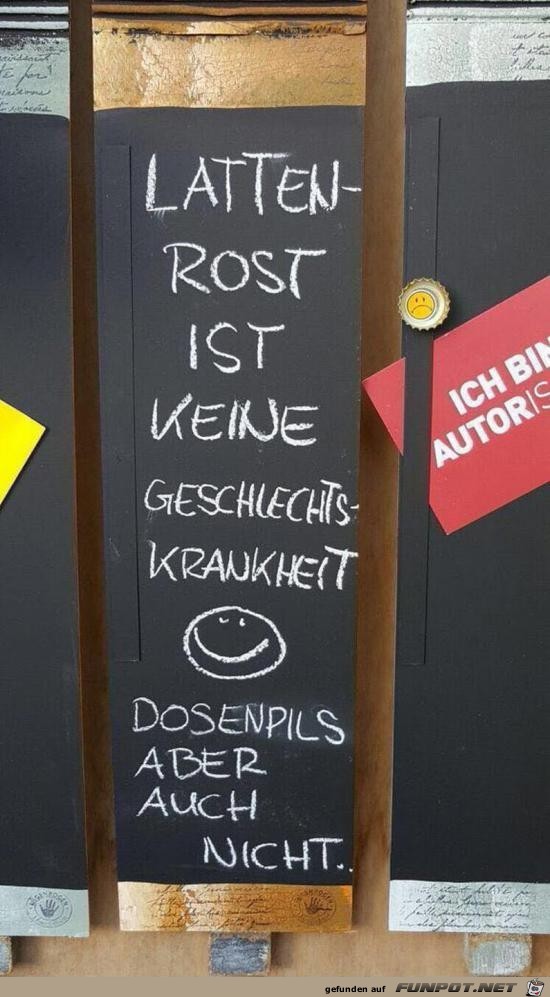 LATTEN-
ROST
IST
KEINE
GESCHLECHTS-
KRANKHEIT
DOSENPILS
ABER
AUCH
NICHT..
ICH BIN
AUTORIS
gefunden auf FUNPOT.NET